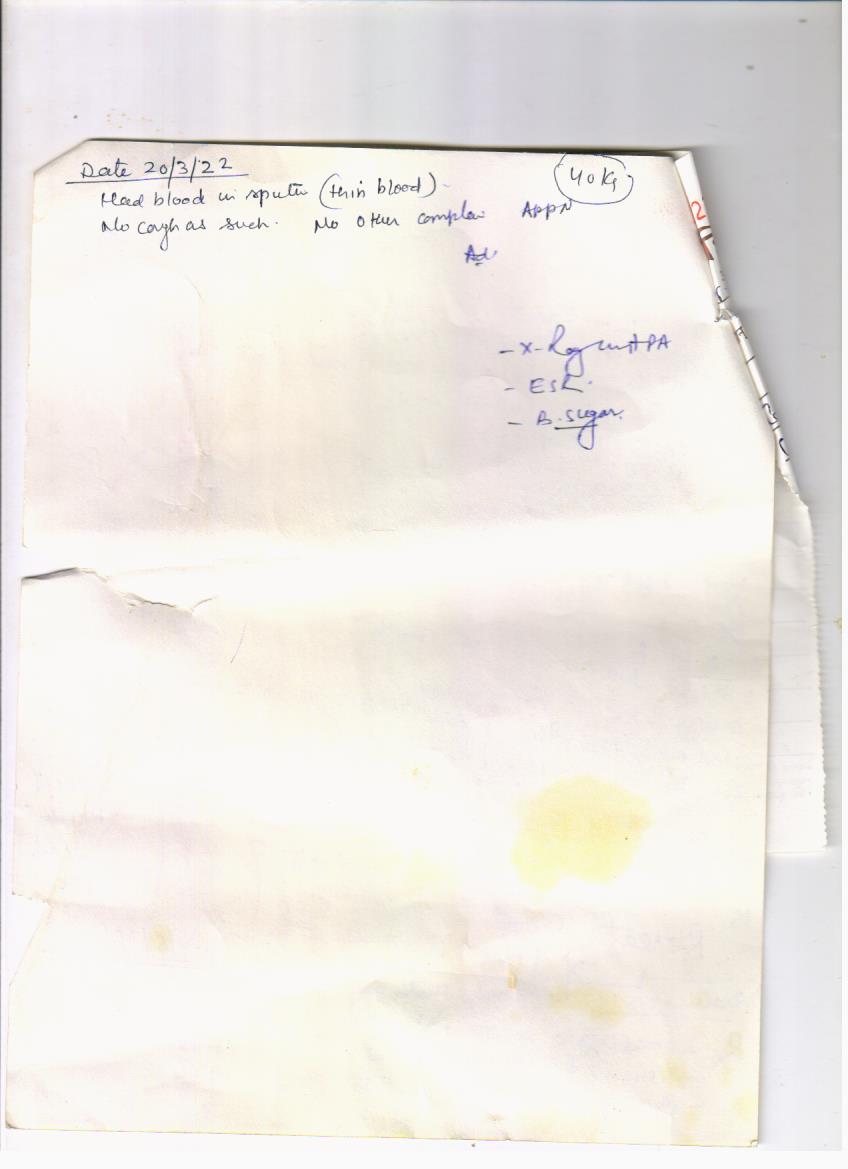 Date 20/3/22
40 Kg
Had blood in sputu (thin blood).
No cough as such. No other complai
Ad
- X-Ray PA
- ESR.
- B. sugar.